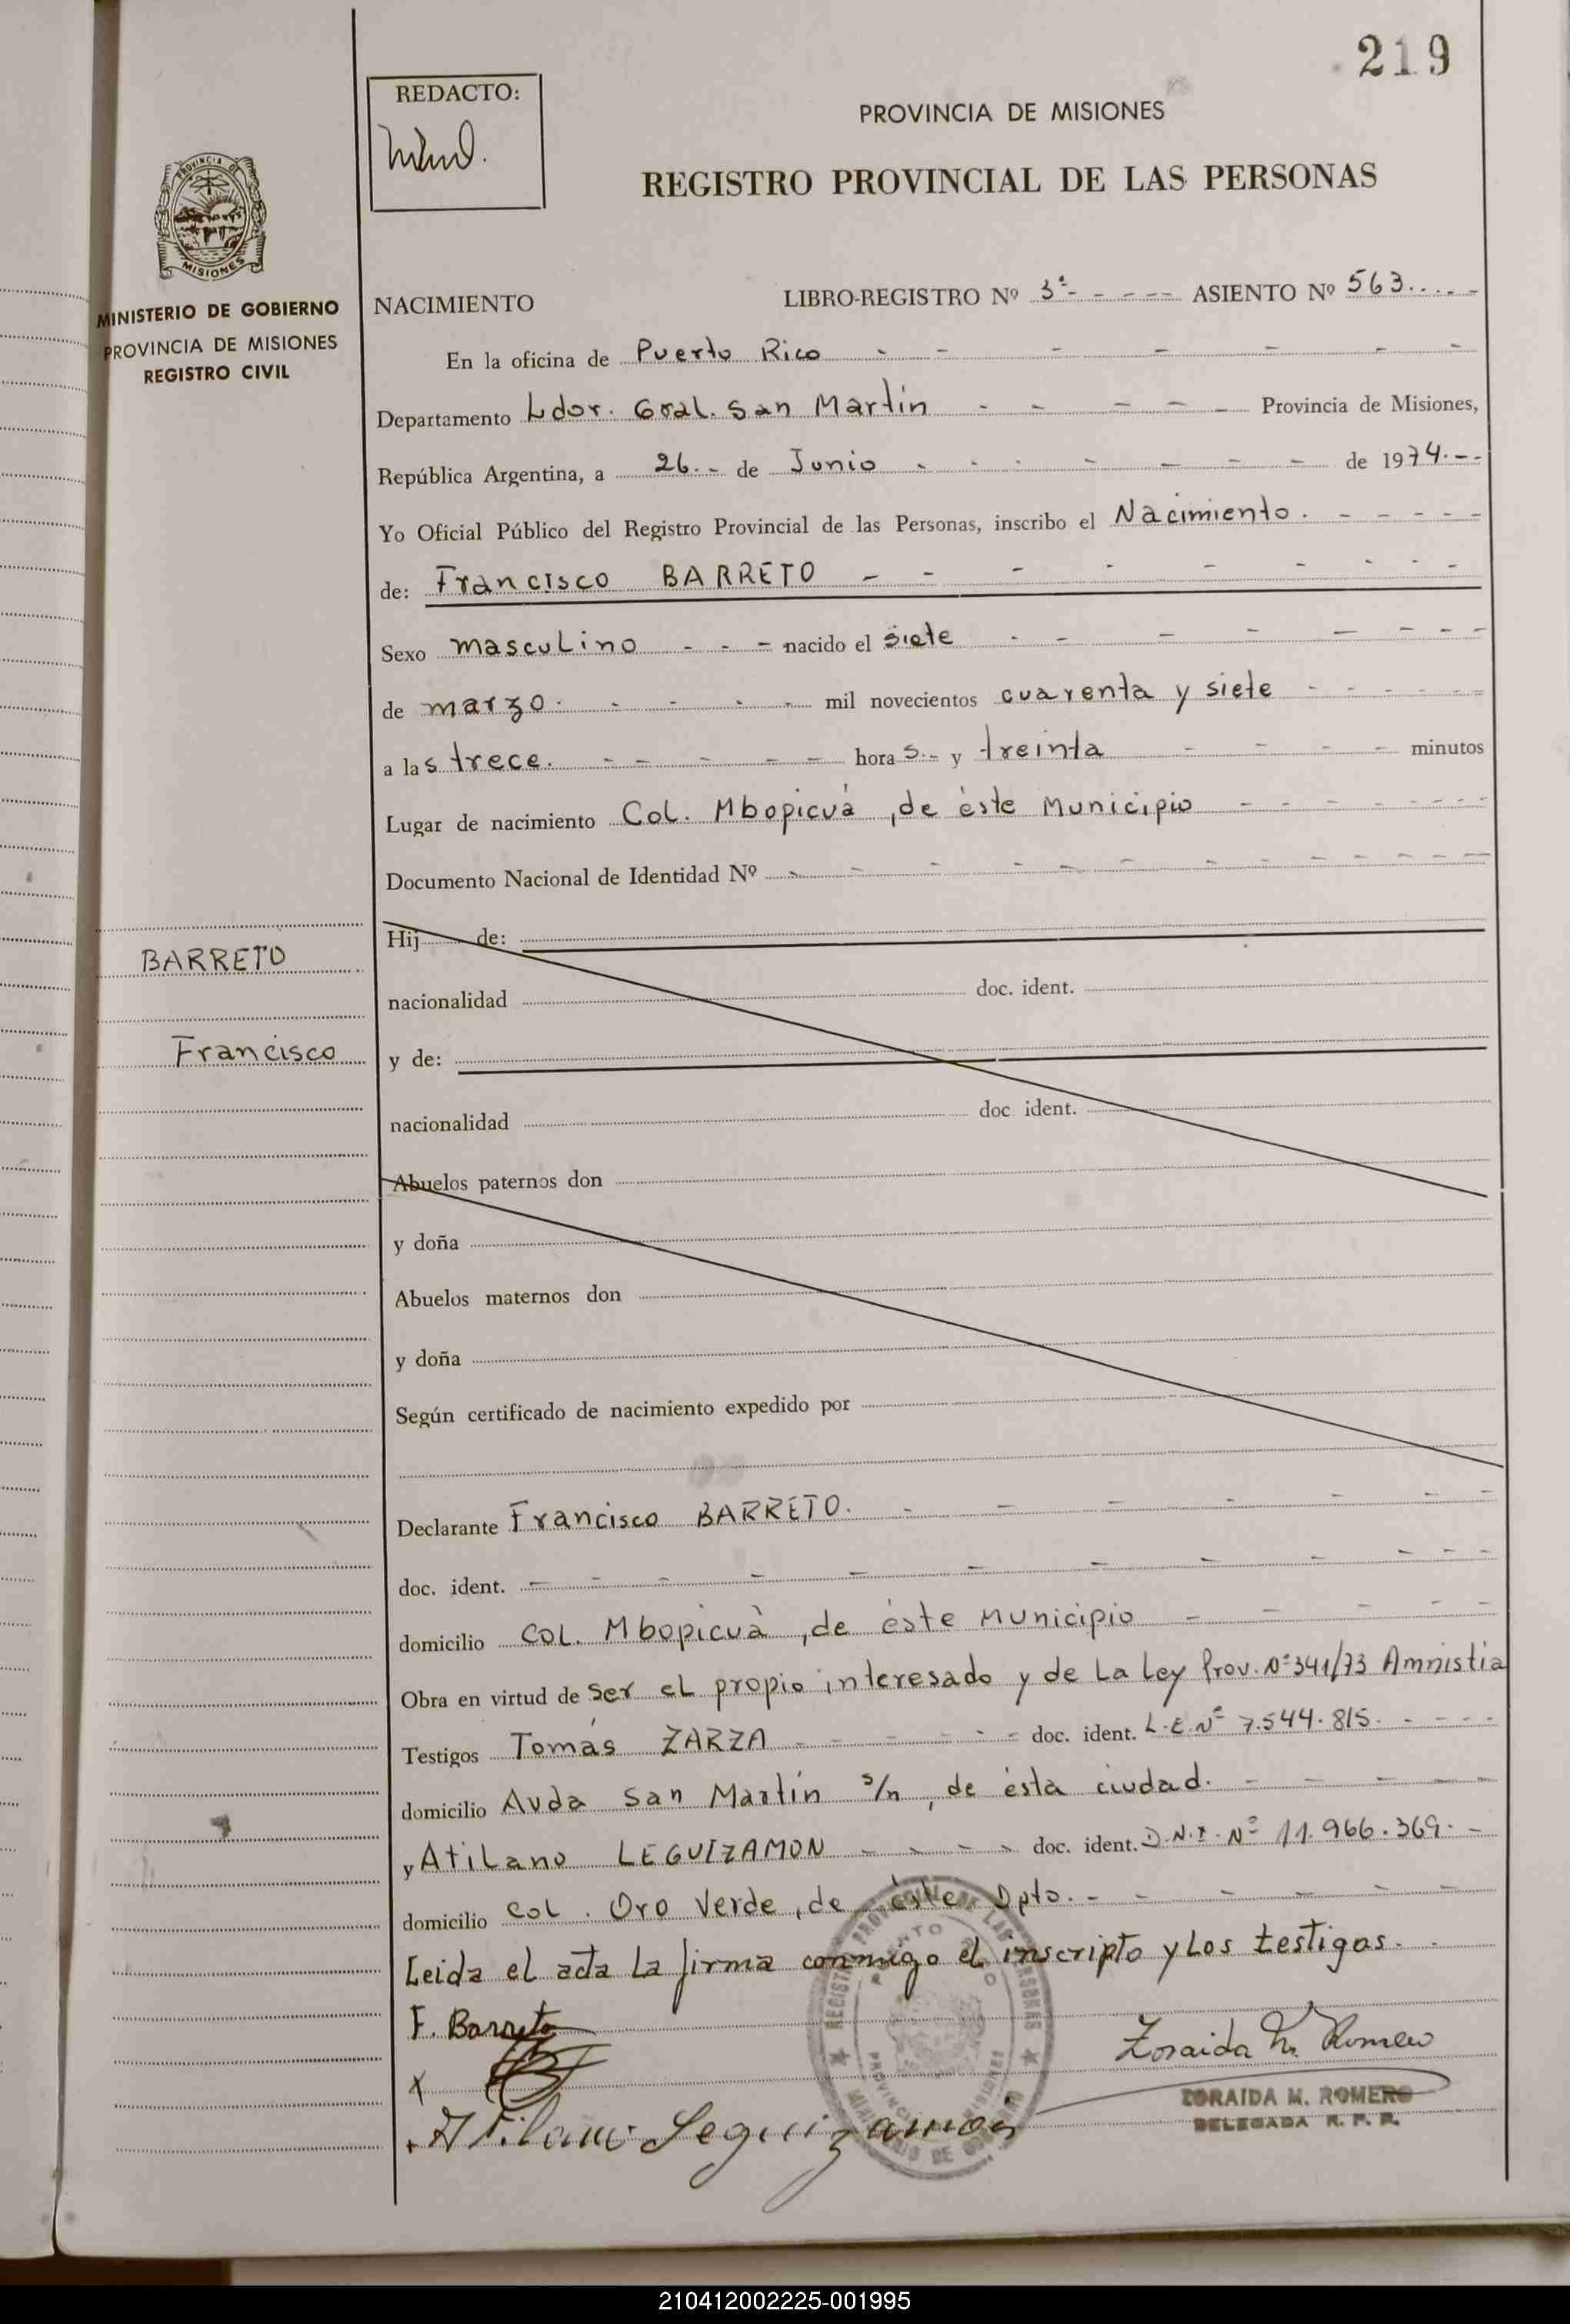 219
REDACTO:
PROVINCIA DE MISIONES
REGISTRO PROVINCIAL DE LAS PERSONAS
PROVINCIA DE
MISIONES
MINISTERIO DE GOBIERNO
PROVINCIA DE MISIONES
REGISTRO CIVIL
NACIMIENTO LIBRO-REGISTRO Nº 3º - - - - - ASIENTO Nº 563
En la oficina de Puerto Rico - - - - - - -
Departamento Ldor. Gral. San Martín - - - - - Provincia de Misiones,
República Argentina, a 26.- de Junio - - - - - - - de 1974.--
Yo Oficial Público del Registro Provincial de las Personas, inscribo el Nacimiento. - - - - -
de: Francisco BARRETO - - - - - - - - - -
Sexo masculino - - - nacido el siete - - - - - - - -
de marzo. - - - - - mil novecientos cuarenta y siete - - - - -
a las trece. - - - - - horas.- y treinta - - - - minutos
Lugar de nacimiento Col. Mbopicuà, de èste Municipio - - - - - - -
Documento Nacional de Identidad Nº - - - - - - - - - - - -
Hij de:
nacionalidad doc. ident.
BARRETO
Francisco
y de:
nacionalidad doc ident.
Abuelos paternos don
y doña
Abuelos maternos don
y doña
Según certificado de nacimiento expedido por
Declarante Francisco BARRETO. - - - - - - -
doc. ident. - - - - - - - - - - -
domicilio Col. Mbopicuà, de èste Municipio - - - - -
Obra en virtud de ser el propio interesado y de La Ley Prov. Nº 341/73 Amnistia
Testigos Tomás ZARZA - - - - - doc. ident. L.E. Nº 7.544.815. - - - -
domicilio Avda San Martín s/n, de èsta ciudad. - - - - -
y Atilano LEGUIZAMON - - - - doc. ident. D.N.I. Nº 11.966.369. -
domicilio Col. Oro Verde, de èste Dpto. - - - - - -
Leida el acta la firma conmigo el inscripto y los testigos.
F. Barreto
X
Atilano Leguizamon
Zoraida M. Romero
ZORAIDA M. ROMERO
DELEGADA R. P. P.
210412002225-001995